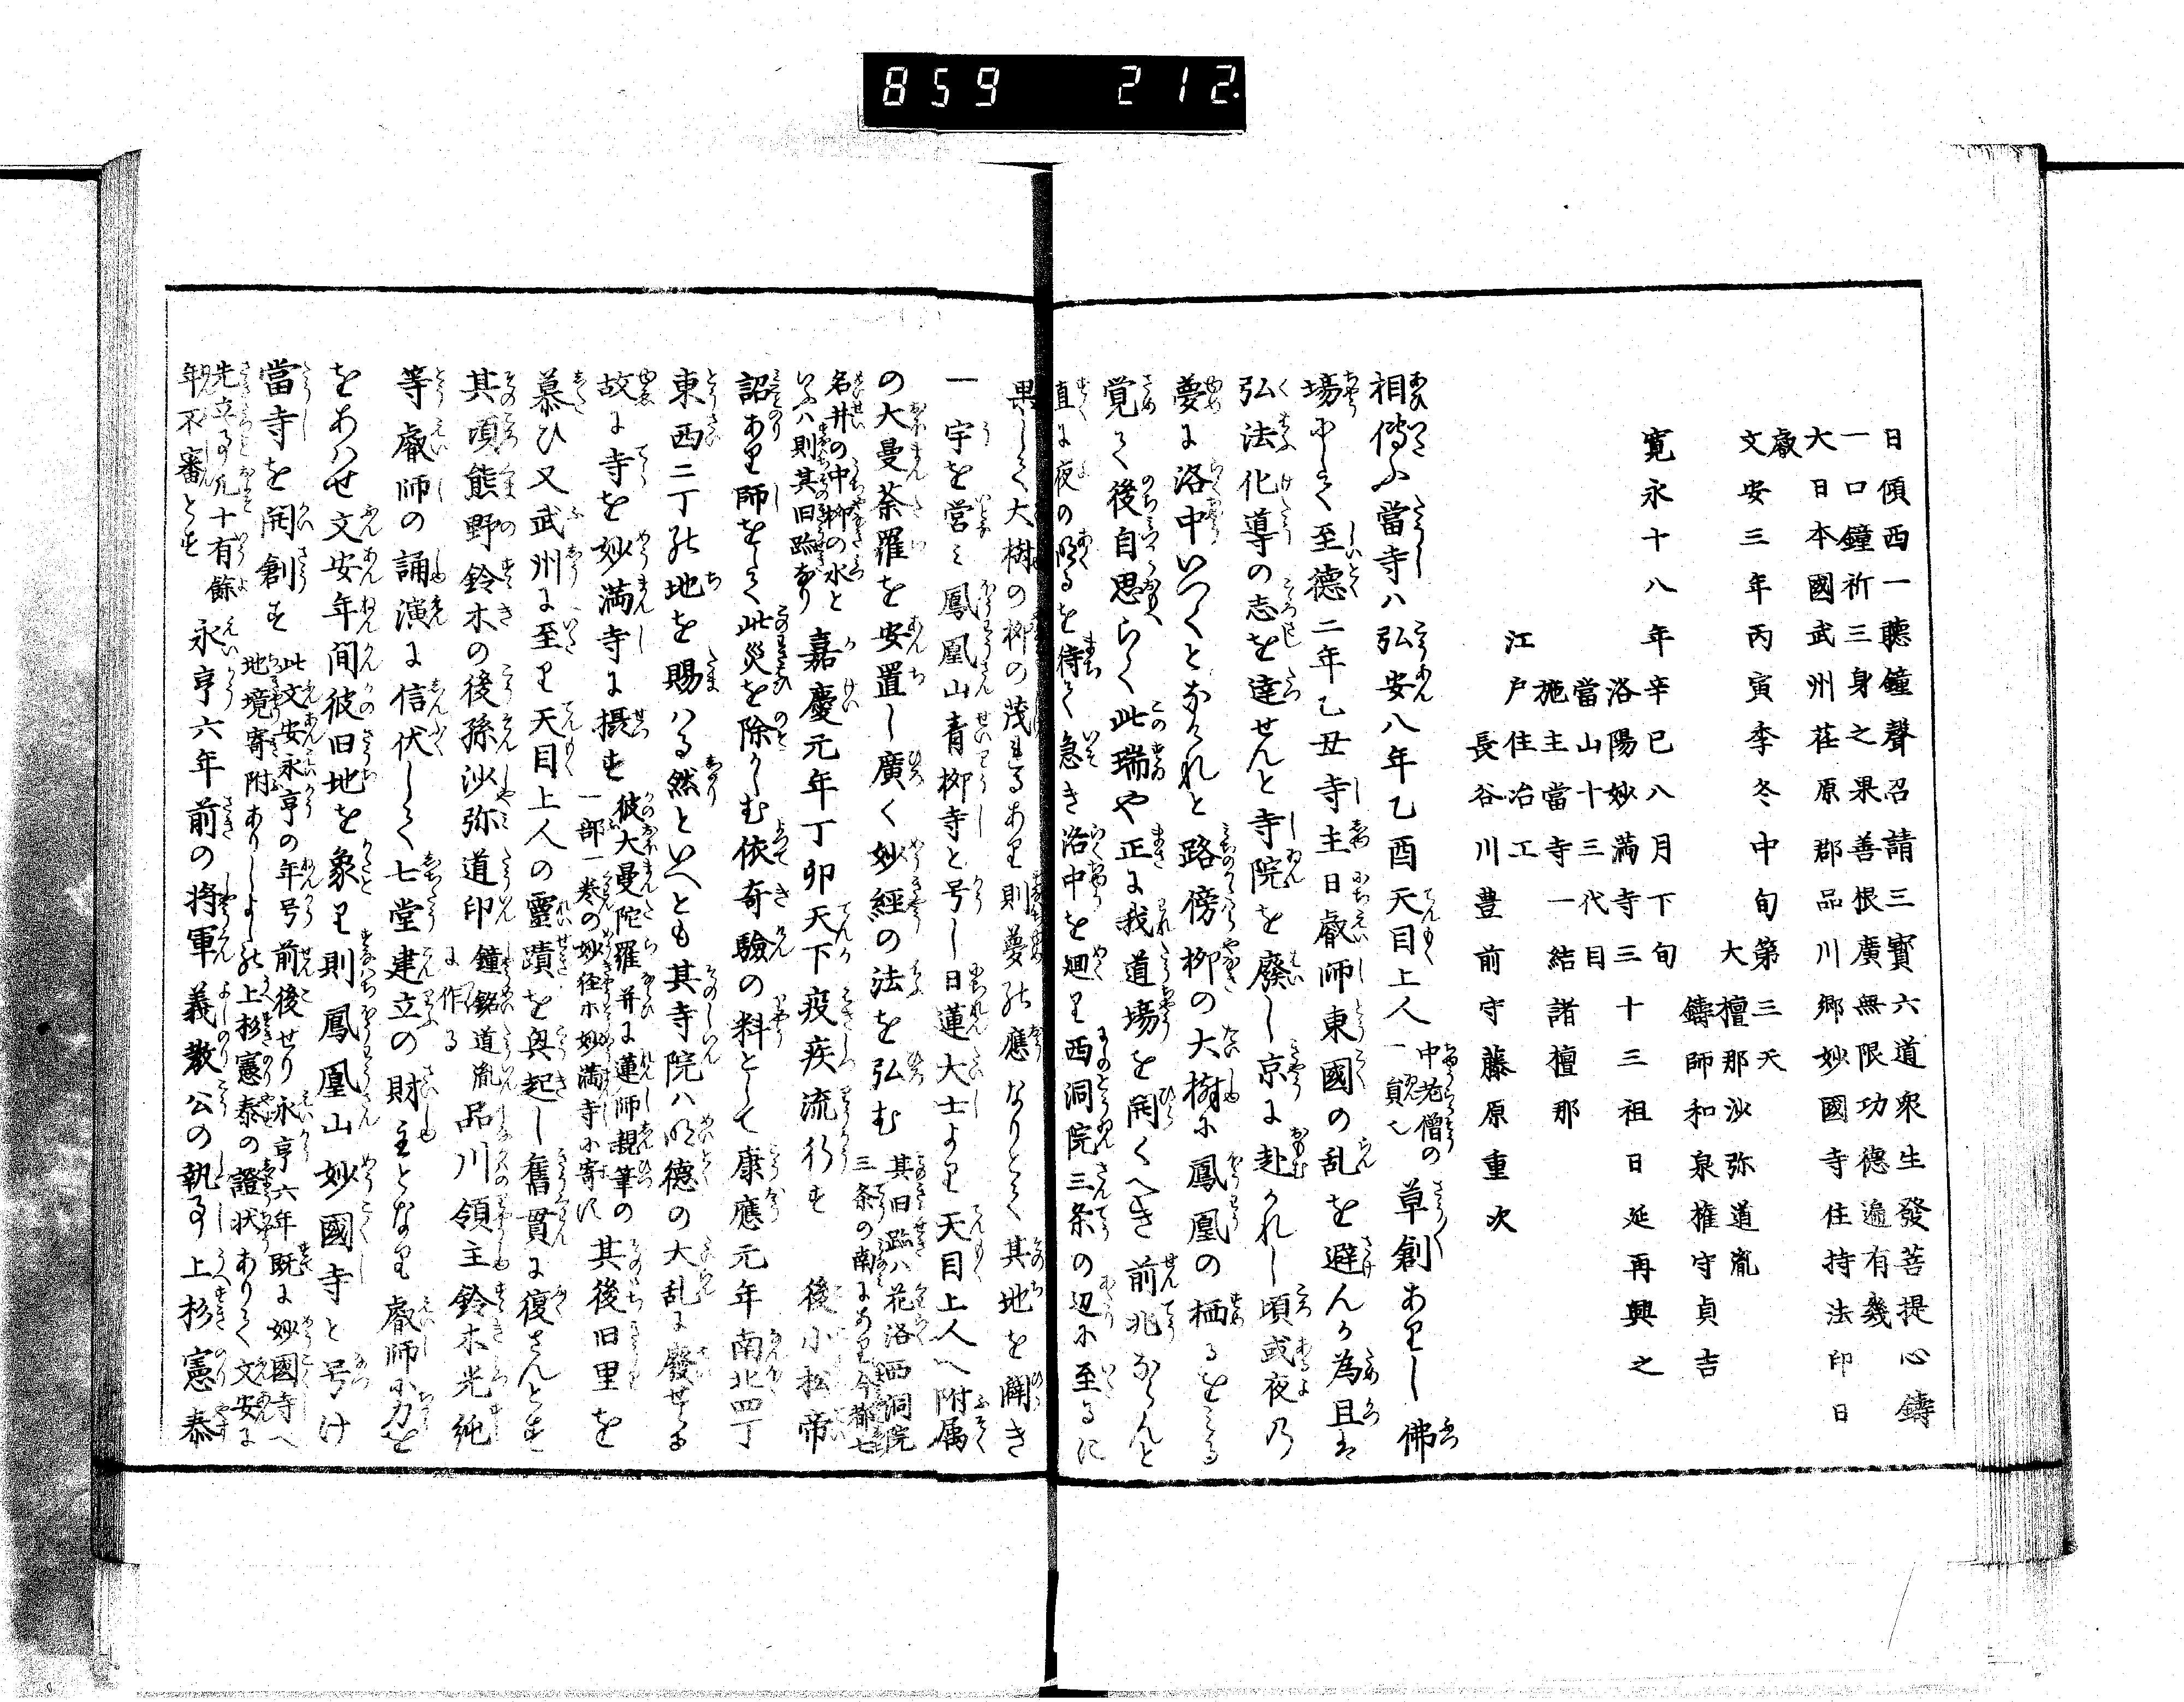 859 212.
日傾西一聽鐘聲召請三寶六道衆生發菩提心鑄
一口鐘祈三身之果善根廣無限功德遍有幾
大日本國武州荏原郡品川鄉妙國寺住持法印日
叡
文安三年丙寅季冬中旬第三天
大檀那沙弥道胤
鑄師和泉権守貞吉
寛永十八年辛巳八月下旬
洛陽妙満寺三十三祖日延再興之
當山十三代目
施主當寺一結諸檀那
江戸住冶工
長谷川豊前守藤原重次
相傳ふ當寺ハ弘安八年乙酉天目上人中老僧の一員也草創ありし佛
場にして至徳二年乙丑寺主日叡師東國の乱を避んか為且は
弘法化導の志を達せんと寺院を廢し京に赴かれし頃或夜乃
夢に洛中いつくとなけれと路傍柳の大樹に鳳凰の栖るをみる
覚て後自思らく此瑞や正に我道場を開くへき前兆ならんと
直に夜の明るを待て急き洛中を廻り西洞院三条の辺に至るに
果して大樹の柳の茂れるあり則夢の應なりとて其地を闢き
一宇を営み鳳凰山青柳寺と号し日蓮大士より天目上人へ附属
の大曼荼羅を安置し廣く妙經の法を弘む其旧趾ハ花洛西洞院三条の南にあり今都七
名井の中柳の水といふハ則其旧趾なり嘉慶元年丁卯天下疫疾流行す後小松帝
詔あり師をして此災を除かしむ依奇驗の料として康應元年南北四丁
東西二丁の地を賜ハる然といへとも其寺院ハ明徳の大乱に廢せる
故に寺を妙満寺に摂す彼大曼陀羅并に蓮師親筆の一部一巻の妙経ホ妙満寺に寄に其後旧里を
慕ひ又武州に至り天目上人の靈蹟を興起し舊貫に復さんとす
其頃熊野鈴木の後孫沙弥道印鐘銘道胤に作る品川領主鈴木光純
等叡師の誦演に信伏して七堂建立の財主となり叡師に力を
をあハせ文安年間彼旧地を象り則鳳凰山妙國寺と号け
當寺を開創す此文安永亨の年号前後せり永亨六年既に妙國寺へ地境寄附ありしよしの上杉憲泰の證状ありて文安に
先立る事凡十有餘年不審とす永亨六年前の将軍義教公の執事上杉憲泰